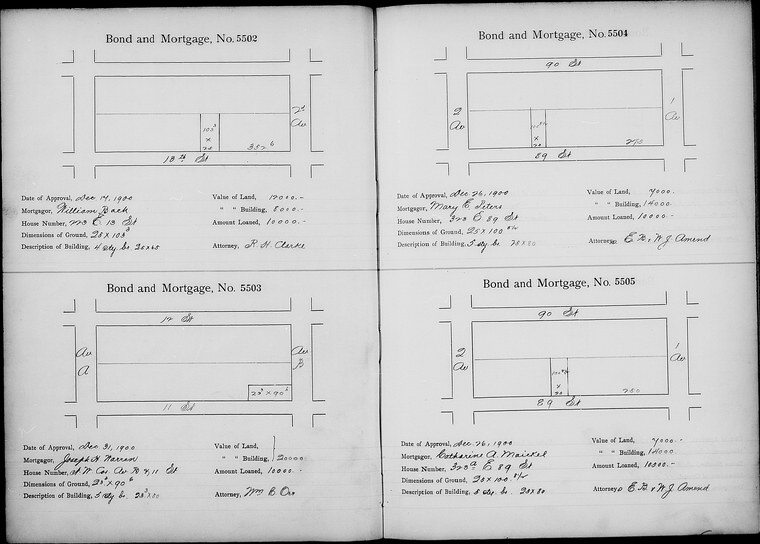 Bond and Mortgage, No. 5502
2d
Av
103³
x
25
352⁶
13th St
Date of Approval, Dec 17, 1900
Mortgagor, William Bach
House Number, 223 E. 13 St
Dimensions of Ground, 25 x 103³
Description of Building, 4 sty br. 25x65
Value of Land, 12000.-
" " Building, 8000.-
Amount Loaned, 10000.-
Attorney, R. H. Clarke
Bond and Mortgage, No. 5503
12 St
Av
A
Av
B
23³ x 90⁶
11 St
Date of Approval, Dec 31, 1900
Mortgagor, Joseph H. Warren
House Number, N W Cor Av B & 11 St
Dimensions of Ground, 23³ x 90⁶
Description of Building, 5 sty br. 23³x80
Value of Land,
" " Building, 20000
Amount Loaned, 10000.-
Attorney, Wm B. Orr
Bond and Mortgage, No. 5504
90 St
2
Av
1
Av
x
25
89 St
Date of Approval, Dec 26, 1900
Mortgagor, Mary E. Peters
House Number, 323 E 89 St
Dimensions of Ground, 25 x 100 8½
Description of Building, 5 sty br. 25x80
Value of Land, 7000.
" " Building, 14000
Amount Loaned, 10000.-
Attorneys E. B. & W J Amend
Bond and Mortgage, No. 5505
90 St
2
Av
1
Av
100 8½
x
25
250
89 St
Date of Approval, Dec 26, 1900
Mortgagor, Catharine A.
House Number, 323ᵃ E 89 St
Dimensions of Ground, 25 x 100 8½
Description of Building, 5 sty br. 25x80
Value of Land, 7000.-
" " Building, 14000
Amount Loaned, 10000.-
Attorneys E. B. & W J Amend